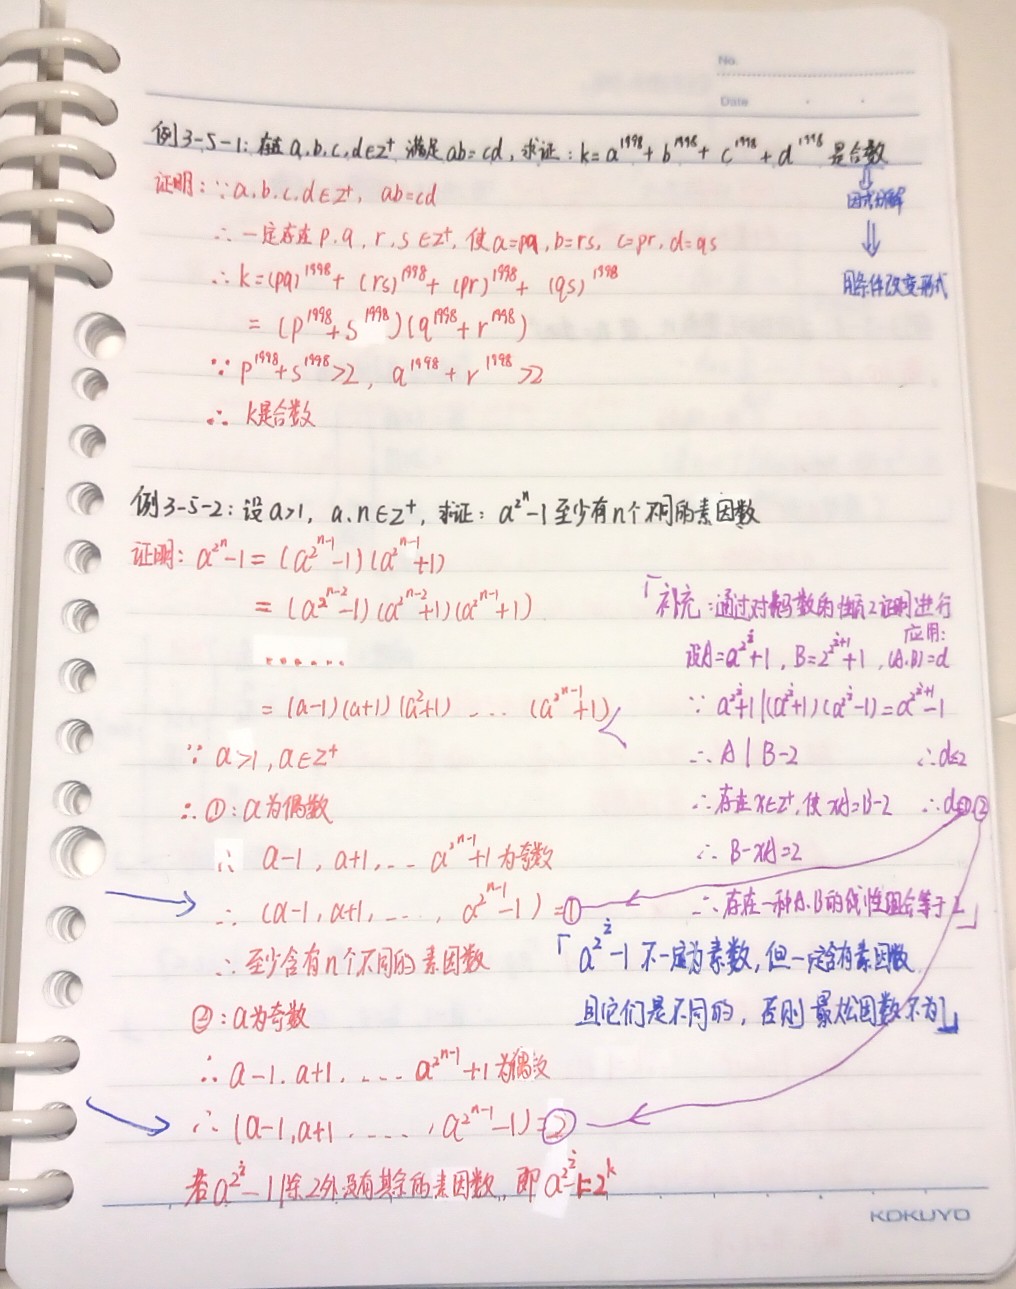 No.
Date
例3-5-1:存在a,b,c,d∈Z⁺ 满足ab=cd,求证:k=a¹⁹⁹⁸+b¹⁹⁹⁸+c¹⁹⁹⁸+d¹⁹⁹⁸ 是合数
⇓
因式分解
⇓
用条件改变形式
证明:∵a,b,c,d∈Z⁺, ab=cd
∴一定存在p,q,r,s∈Z⁺,使a=pq,b=rs, c=pr,d=qs
∴k=(pq)¹⁹⁹⁸+(rs)¹⁹⁹⁸+(pr)¹⁹⁹⁸+(qs)¹⁹⁹⁸
=(p¹⁹⁹⁸+s¹⁹⁹⁸)(q¹⁹⁹⁸+r¹⁹⁹⁸)
∵p¹⁹⁹⁸+s¹⁹⁹⁸>2, q¹⁹⁹⁸+r¹⁹⁹⁸>2
∴k是合数
例3-5-2:设a>1, a,n∈Z⁺,求证:a^{2^n}-1至少有n个不同的素因数
证明:a^{2^n}-1=(a^{2^{n-1}}-1)(a^{2^{n-1}}+1)
=(a^{2^{n-2}}-1)(a^{2^{n-2}}+1)(a^{2^{n-1}}+1)
.......
=(a-1)(a+1)(a²+1)....(a^{2^{n-1}}+1)
∵a>1,a∈Z⁺
∴①:a为偶数
∴ a-1,a+1,... a^{2^{n-1}}+1为奇数
∴(a-1,a+1,...,a^{2^{n-1}}-1)=①
∴至少含有n个不同的素因数
②:a为奇数
∴a-1,a+1,....a^{2^{n-1}}+1为偶数
∴(a-1,a+1.....,a^{2^{n-1}}-1)=②
若a^{2^i}-1除2外没有其余的素因数,即a^{2^i}-1=2^k
「补充:通过对费马数的性质2证明进行
应用:
设A=a^{2^i}+1,B=2^{2^{i+1}}+1,(A,B)=d
∵a^{2^i}+1|(a^{2^i}+1)(a^{2^i}-1)=a^{2^{i+1}}-1
∴A|B-2 ∴d≤2
∴存在x∈Z⁺,使xA=B-2 ∴d=①②
∴B-xA=2
∴存在一种A,B的线性组合等于2」
「a^{2^i}-1不一定为素数,但一定含有素因数
且它们是不同的,否则最大公因数不为1」
KOKUYO